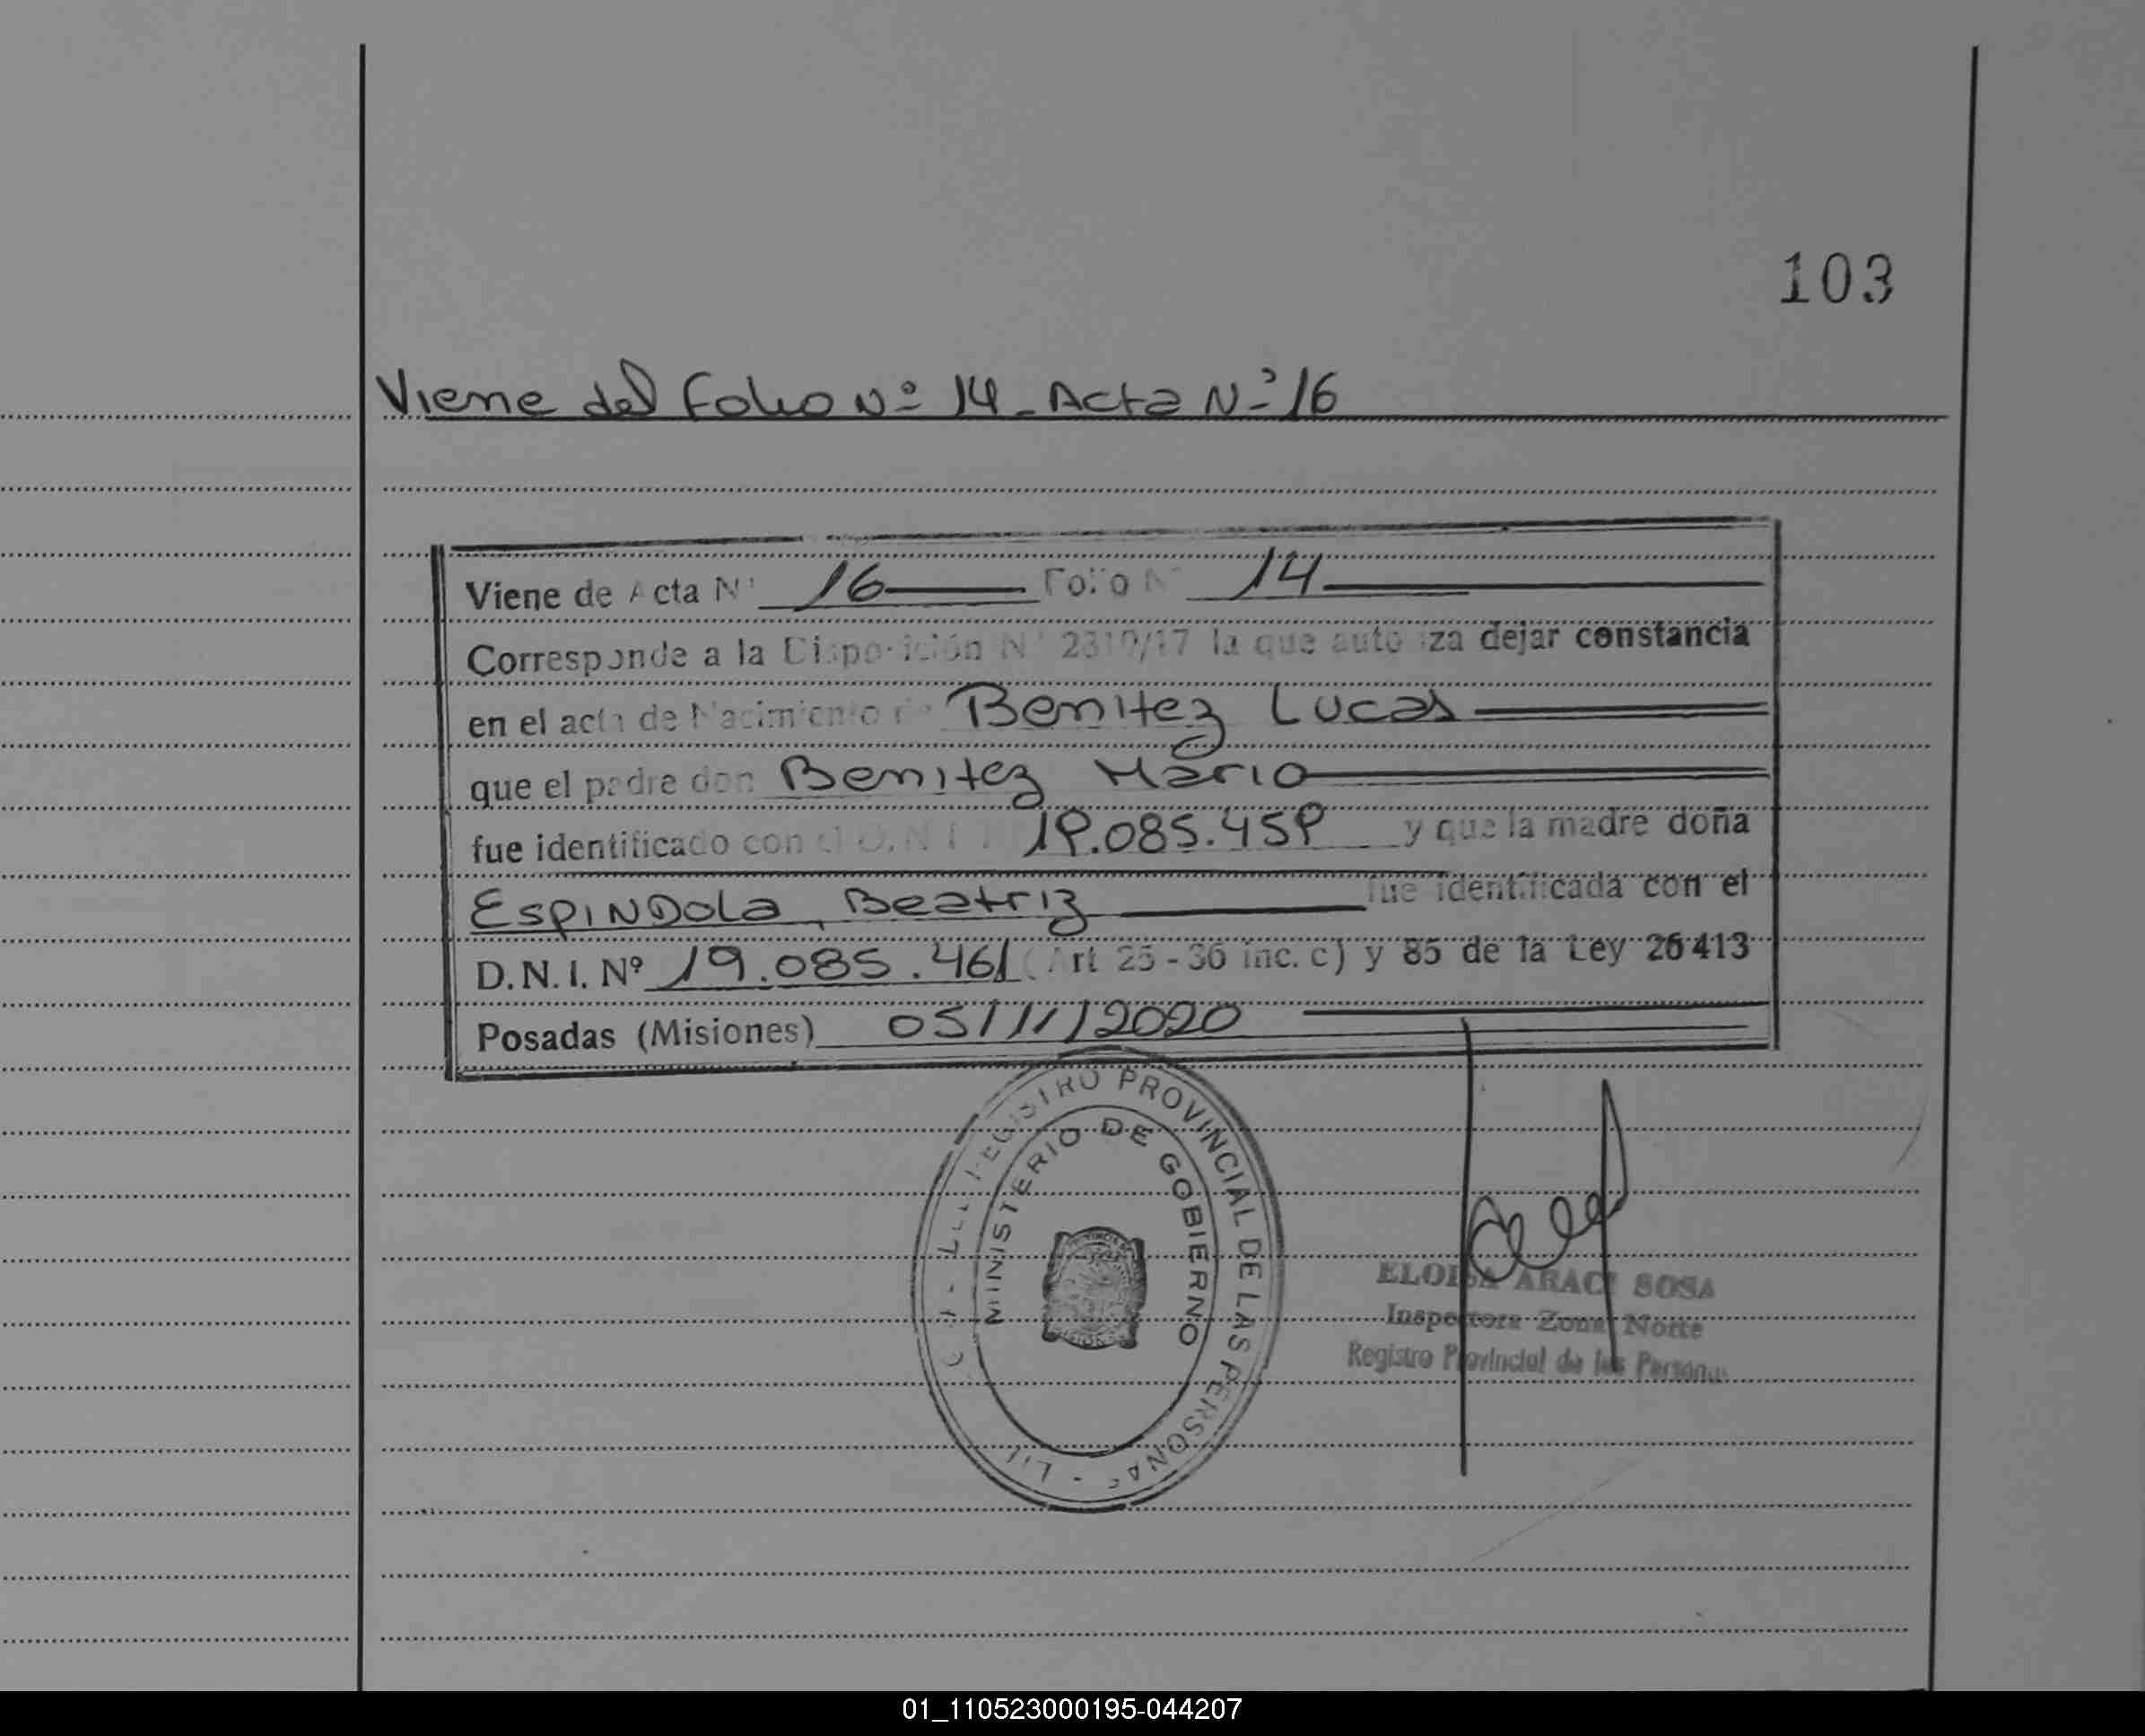 103
Viene del Folio Nº 14 - Acta Nº 16
Viene de Acta Nº 16 Folio Nº 14
Corresponde a la Disposición Nº /17 la que autoriza dejar constancia
en el acta de Nacimiento de Benitez Lucas
que el padre don Benitez Mario
fue identificado con el D.N.I. 19.085.459 y que la madre doña
Espindola, Beatriz fue identificada con el
D.N.I. Nº 19.085.461 (Art 25 - 36 inc. c) y 85 de la Ley 26413
Posadas (Misiones) 05/11/2020
REGISTRO PROVINCIAL DE LAS PERSONAS
MINISTERIO DE GOBIERNO
ELOISA ARACI SOSA
Inspectora Zona Norte
Registro Provincial de las Personas
01_110523000195-044207